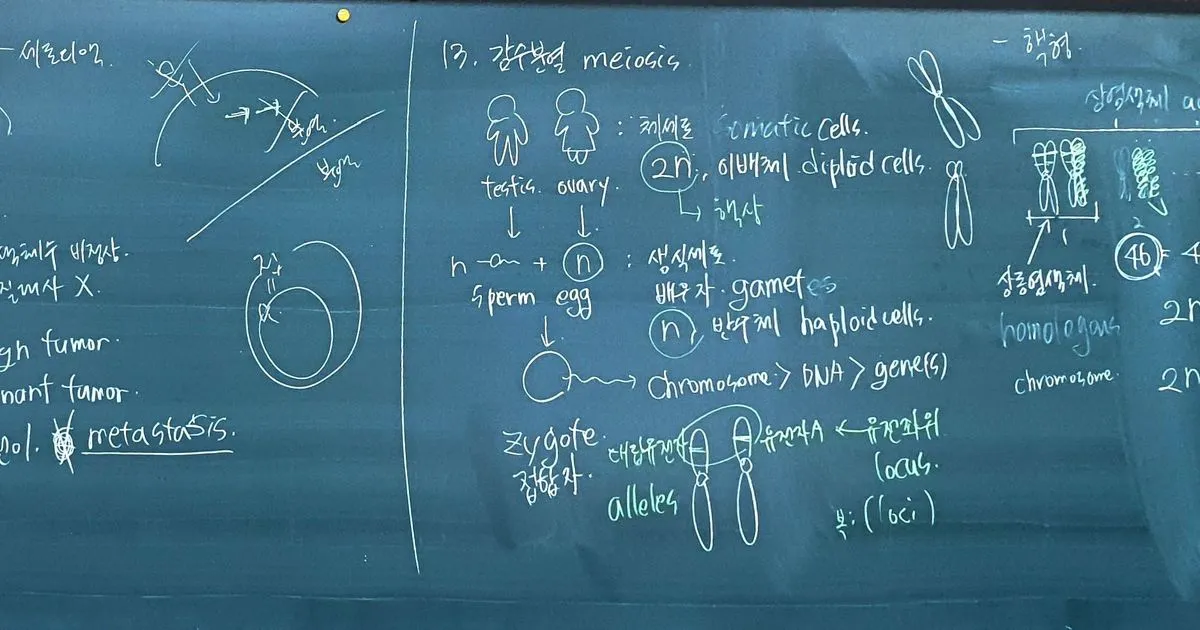 13. 감수분열 meiosis.
: 체세포 somatic cells.
2n, 이배체 diploid cells.
핵상
testis. ovary.
n + n : 생식세포
sperm egg
배우자. gametes
n, 반수체 haploid cells.
chromosome > DNA > gene(s)
zygote.
접합자.
대립유전자
alleles
유전자A ← 유전좌위
locus.
복: (loci)
- 핵형
상염색체
1
2
46 =
상동염색체.
homologous
chromosome.
2n
2n
비정상.
X.
gn tumor.
nant tumor.
metastasis.